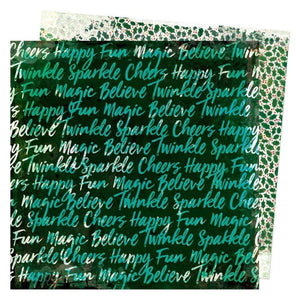 Cheers Happy Fun Magic Believe Twin
Twinkle Sparkle Cheers Happy Fun M
Fun Magic Believe Twinkle Sparkle
Sparkle Cheers Happy Fun Magic Bel
Happy Fun Magic Believe Twinkle
Believe Twinkle Sparkle Cheers Hap
Twinkle Sparkle Cheers Happy Fun
Cheers Happy Fun Magic Believe Tw
Happy Fun Magic Believe Twinkle
Believe Twinkle Sparkle Cheers H
Sparkle Cheers Happy Fun Magic
Fun Magic Believe Twinkle Sparkle
Magic Believe Twinkle